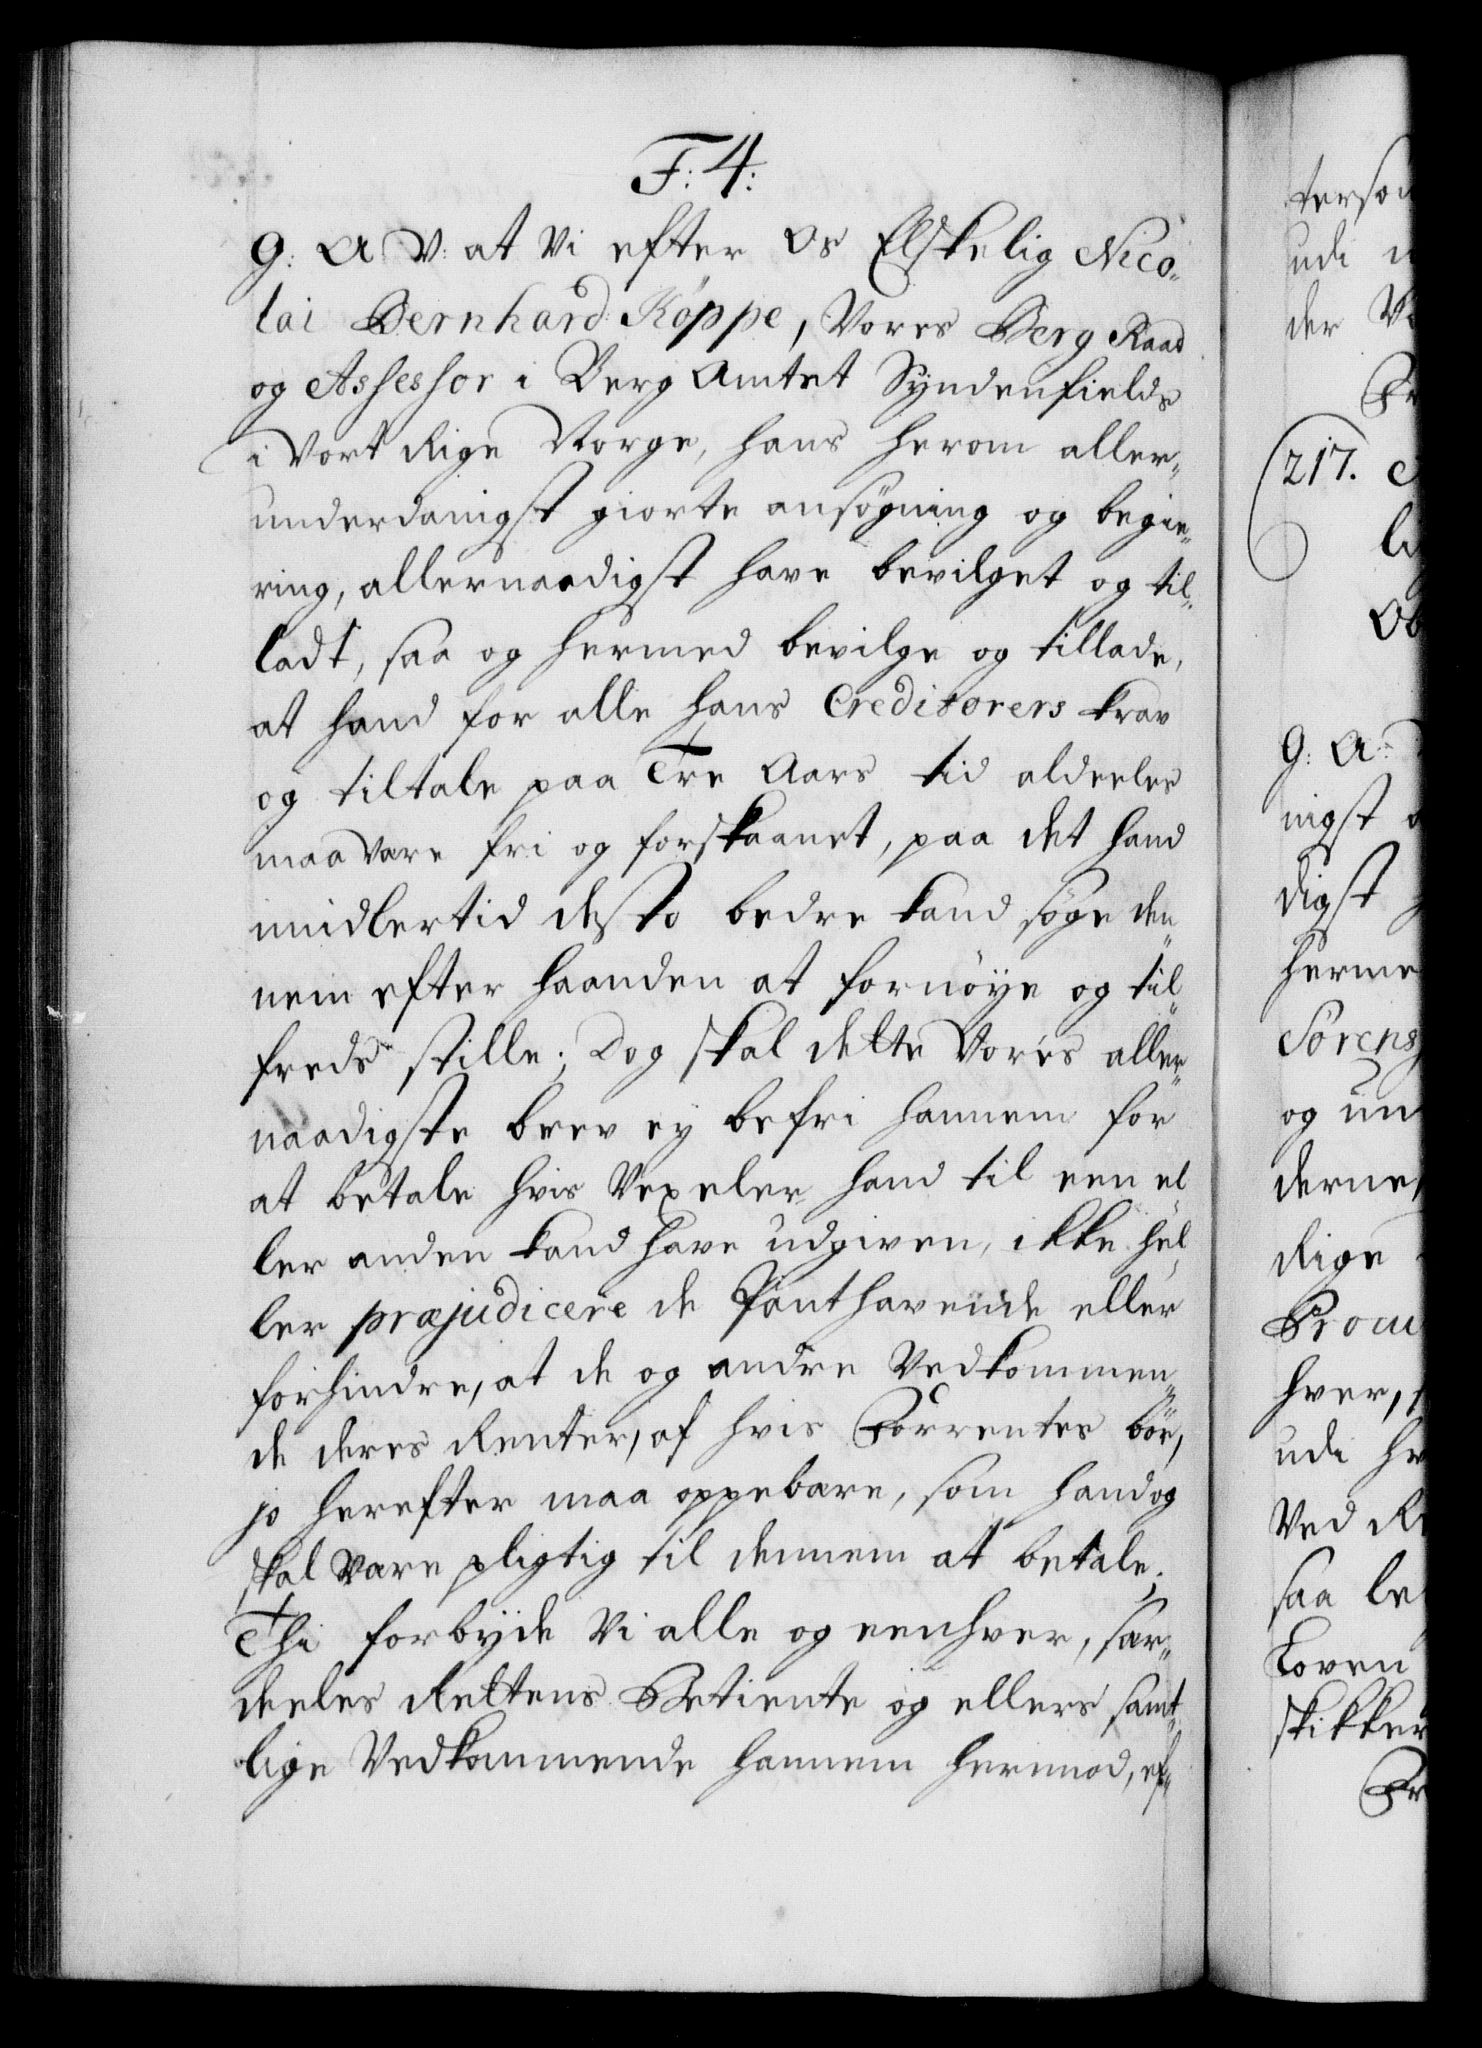 F: 4:
G: A V: at Vi efter Os Elskelig Nico„
lai Bernhard Köppe, Vores Berg Raad
og Assessor i Berg Amtet Syndenfields
i Vort Rige Norge, hans herom aller„
underdanigst giorte ansøgning og begie„
ring, allernaadigst have bevilget og til„
ladt, saa og hermed bevilge og tillade,
at hand for alle hans Creditorers krav
og tiltale paa Tre Aars tid aldeeles
maa være fri og forskaanet, paa det hand
imidlertid desto bedre kand søge den„
nem efter haanden at fornöye og til„
freds stille; Dog skal dette Vores aller„
naadigste brev ey befri hannem for
at betale hvis Vexeler hand til een el„
ler anden kand have udgiven, ikke hel„
ler præjudicere de Panthavende eller
forhindre, at de og andre Vedkommen„
de deres Renter, af hvis Forrentes bör,
jo herefter maa oppebære, som hand og
skal være pligtig til dennem at betale;
Thi forbyde Vi alle og eenhver, sær„
deeles Rettens Betiente og ellers samt„
lige Vedkommende hannem herimod, ef„
terson
udi
der
Fr
217.
Ob
G: A:
nigst
digst
herme
Sörens
og un
derne,
Rige
hver,
udi
Ved
saa
Loven
skikker
Fr